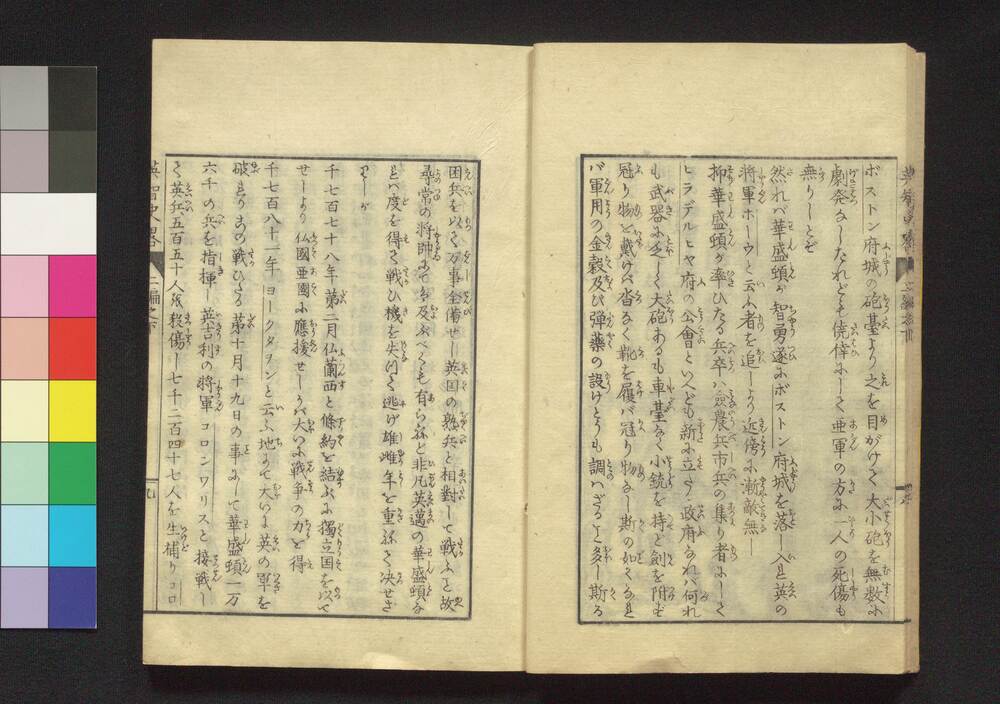 ボストン府城の砲臺より之を目がけて大小砲を無数に
劇発なしたれども僥倖にして亜軍の方に一人の死傷も
無りしとぞ
然れバ華盛頓が智勇遂にボストン府城を落し入れ英の
将軍ホーウと云ふ者を追しより近傍に漸敵無し
抑華盛頓が率ひたる兵卒ハ農兵市兵の集り者にして
ヒラデルヒヤ府の公會といへども新に立たる政府なれバ何れ
も武器に乏しく大砲あるも車臺なく小銃を持ど剣を附ず
冠り物を戴けバ沓なく靴を履バ冠り物なし斯の如くなれ
バ軍用の金穀及び弾薬の設けとうも調ハざること多し斯る
困兵を以て万事全備せし英国の熟兵と相對して戦ふこと故
尋常の将帥にてハ及ぶべくも有らねど非凡英萬の華盛頓な
れバ度を得て戦ひ機を失ハで逃げ雄雌年を重ねて决せざ
りしが
千七百七十八年第二月仏蘭西と條約を結ぶに獨立国を以て
せしより仏國亜國に應援せしかバ大いに戦争の力を得
千七百八十一年ヨークタヲンと云ふ地にて大いに英の軍を
破れりこの戦ひたる第十月十九日の事にして華盛頓一万
六千の兵を指揮し英吉利の将軍コロンワリスと接戦し
て英兵五百五十人を殺傷し七千二百四十七人を生捕りコロ
二編之下
九